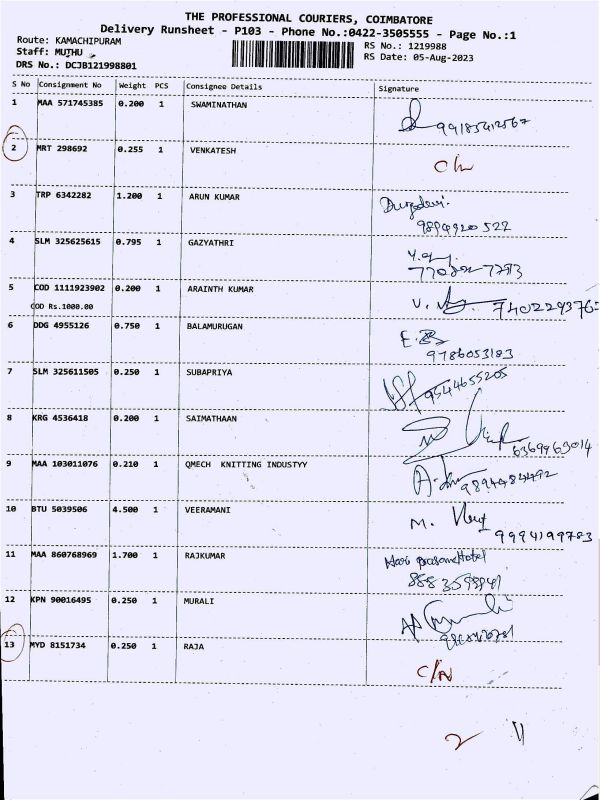 THE PROFESSIONAL COURIERS, COIMBATORE
Delivery Runsheet - P103 - Phone No.:0422-3505555 - Page No.:1
Route: KAMACHIPURAM RS No.: 1219988
Staff: MUTHU RS Date: 05-Aug-2023
DRS No.: DCJB121998801
S No Consignment No Weight PCS Consignee Details Signature
1 MAA 571745385 0.200 1 SWAMINATHAN
2 MRT 298692 0.255 1 VENKATESH
3 TRP 6342282 1.200 1 ARUN KUMAR
9894920522
4 SLM 325625615 0.795 1 GAZYATHRI
5 COD 1111923902 0.200 1 ARAINTH KUMAR
COD Rs.1000.00
6 DDG 4955126 0.750 1 BALAMURUGAN
9786053183
7 SLM 325611505 0.250 1 SUBAPRIYA
9544655205
8 KRG 4536418 0.200 1 SAIMATHAAN
6369963014
9 MAA 103011076 0.210 1 QMECH KNITTING INDUSTYY
9894484492
10 BTU 5039506 4.500 1 VEERAMANI
M.
9994199783
11 MAA 860768969 1.700 1 RAJKUMAR
12 KPN 90016495 0.250 1 MURALI
13 MYD 8151734 0.250 1 RAJA
C/N
2 11